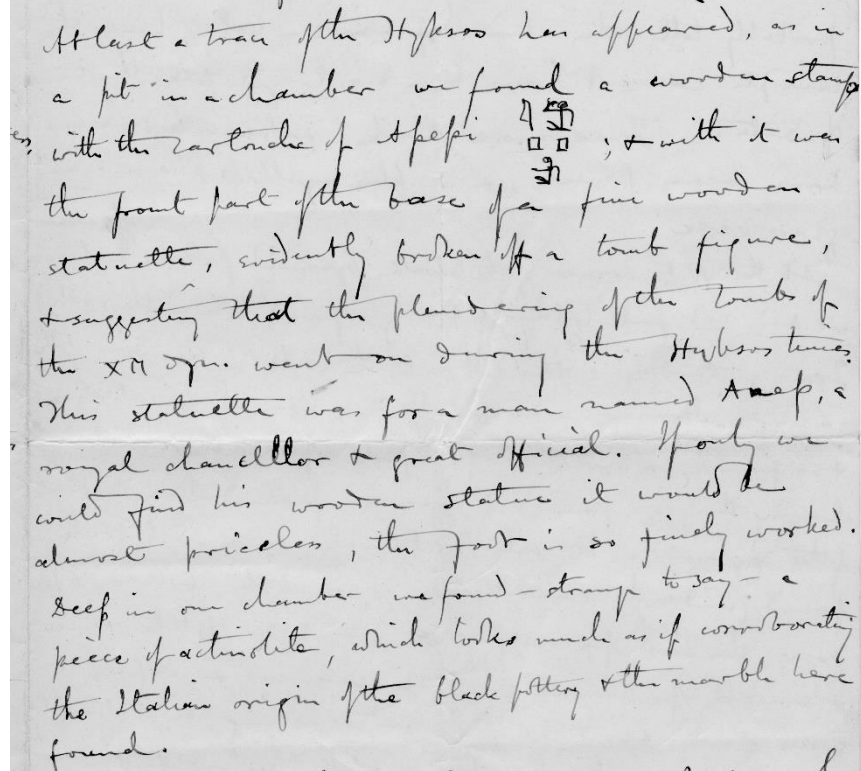 At last a trace of the Hyksos has appeared, as in
a pit in a chamber we found a wooden stamp
with the cartouche of Apepi ; & with it was
the front part of the base of a fine wooden
statuette, evidently broken off a tomb figure,
& suggesting that the plundering of the tombs of
the XII dyn. went on during the Hyksos times.
This statuette was for a man named Anep, a
royal chancellor & great official. If only we
could find his wooden statue it would be
almost priceless, the foot is so finely worked.
Deep in one chamber we found – strange to say – a
piece of actinolite, which looks much as if corroborating
the Italian origin of the black pottery & the marble here
found.